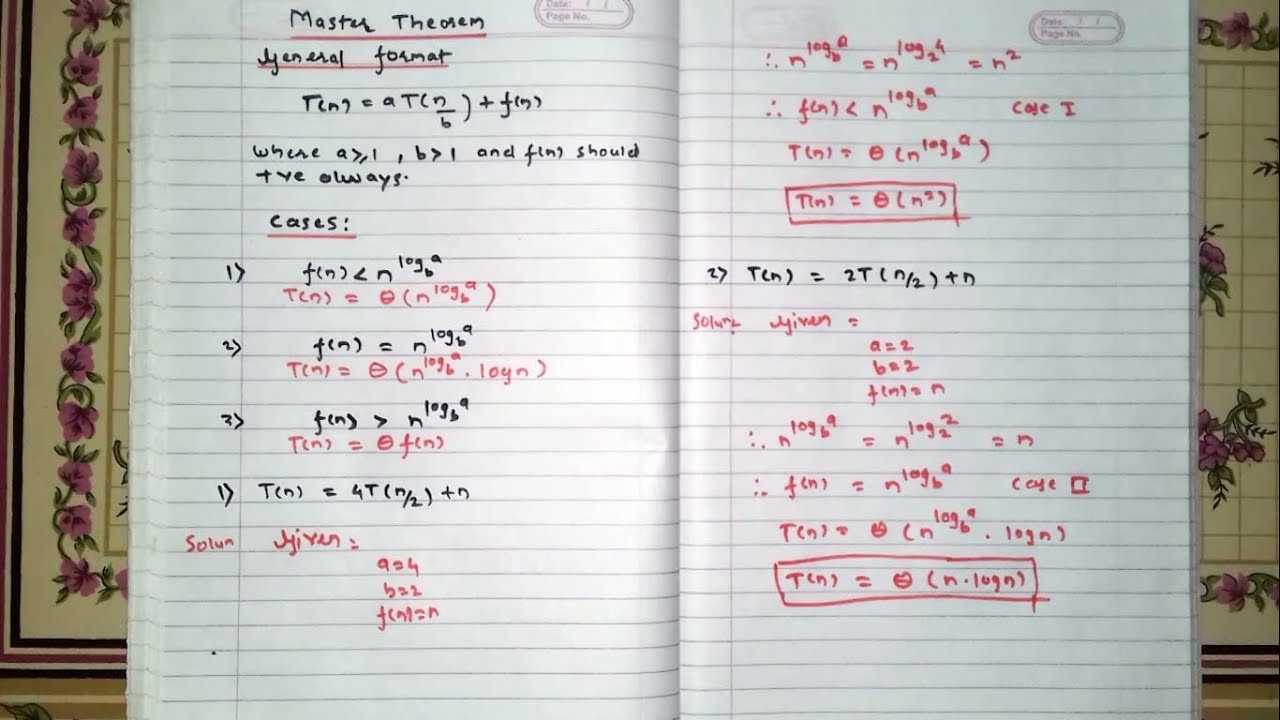 Master Theorem
Date: / /
Page No.
General format
T(n) = a T(n/b) + f(n)
where a≥1, b>1 and f(n) should
+ve always.
Cases:
1) f(n) < n^log_b^a
T(n) = θ(n^log_b^a)
2) f(n) = n^log_b^a
T(n) = θ(n^log_b^a . logn)
3) f(n) > n^log_b^a
T(n) = θ f(n)
1) T(n) = 4T(n/2) + n
Solun Given:
a=4
b=2
f(n)=n
Date: / /
Page No.
∴ n^log_b^a = n^log_2^4 = n²
∴ f(n) < n^log_b^a Case I
T(n) = θ(n^log_b^a)
T(n) = θ(n²)
2) T(n) = 2T(n/2) + n
Solun: Given =
a=2
b=2
f(n)=n
∴ n^log_b^a = n^log_2^2 = n
∴ f(n) = n^log_b^a Case II
T(n) = θ(n^log_b^a . logn)
T(n) = θ(n.logn)